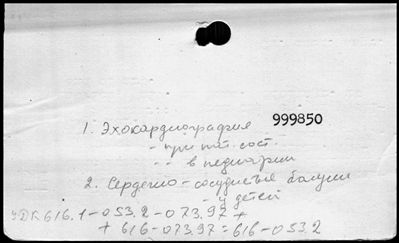 999850
1. Эхокардиография
- при пат. сост.
- - в педиатрии
2. Сердечно-сосудистые болезни
- у детей
УДК 616.1-053.2-073.97 +
+ 616-073.97:616-053.2